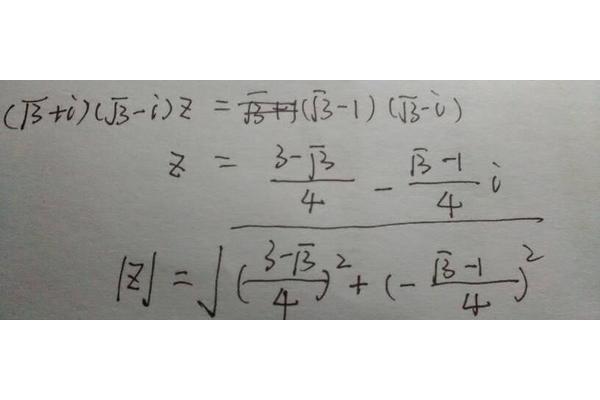 (√3+i)(√3-i)z = (√3-1)(√3-i)
z = \frac{3-√3}{4} - \frac{√3-1}{4}i
|z| = \sqrt{(\frac{3-√3}{4})^2+(-\frac{√3-1}{4})^2}